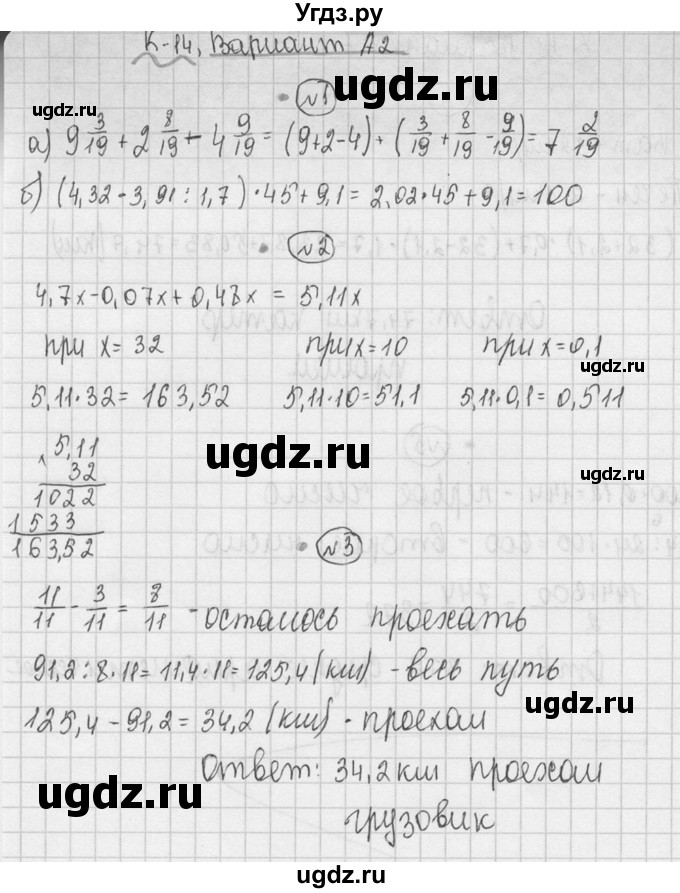 Угдз.ру
К-14, Вариант А2
№1
а) 9 3/19 + 2 8/19 - 4 9/19 = (9+2-4) + (3/19 + 8/19 - 9/19) = 7 2/19
б) (4,32-3,91:1,7)·45+9,1=2,02·45+9,1=100
№2
4,7x-0,07x+0,48x = 5,11x
при x= 32 при x=10 при x=0,1
5,11·32= 163,52 5,11·10=51,1 5,11·0,1= 0,511
× 5,11
32
1022
1533
163,52
№3
11/11 - 3/11 = 8/11 - осталось проехать
91,2:8·11=11,4·11=125,4 (км) - весь путь
125,4-91,2=34,2 (км) - проехал
Ответ: 34,2 км проехал
грузовик
ugdz.ru
ugdz.ru
ugdz.ru
ugdz.ru
ugdz.ru
ugdz.ru
ugdz.ru
ugdz.ru
ugdz.ru
ugdz.ru
ugdz.ru
ugdz.ru
ugdz.ru